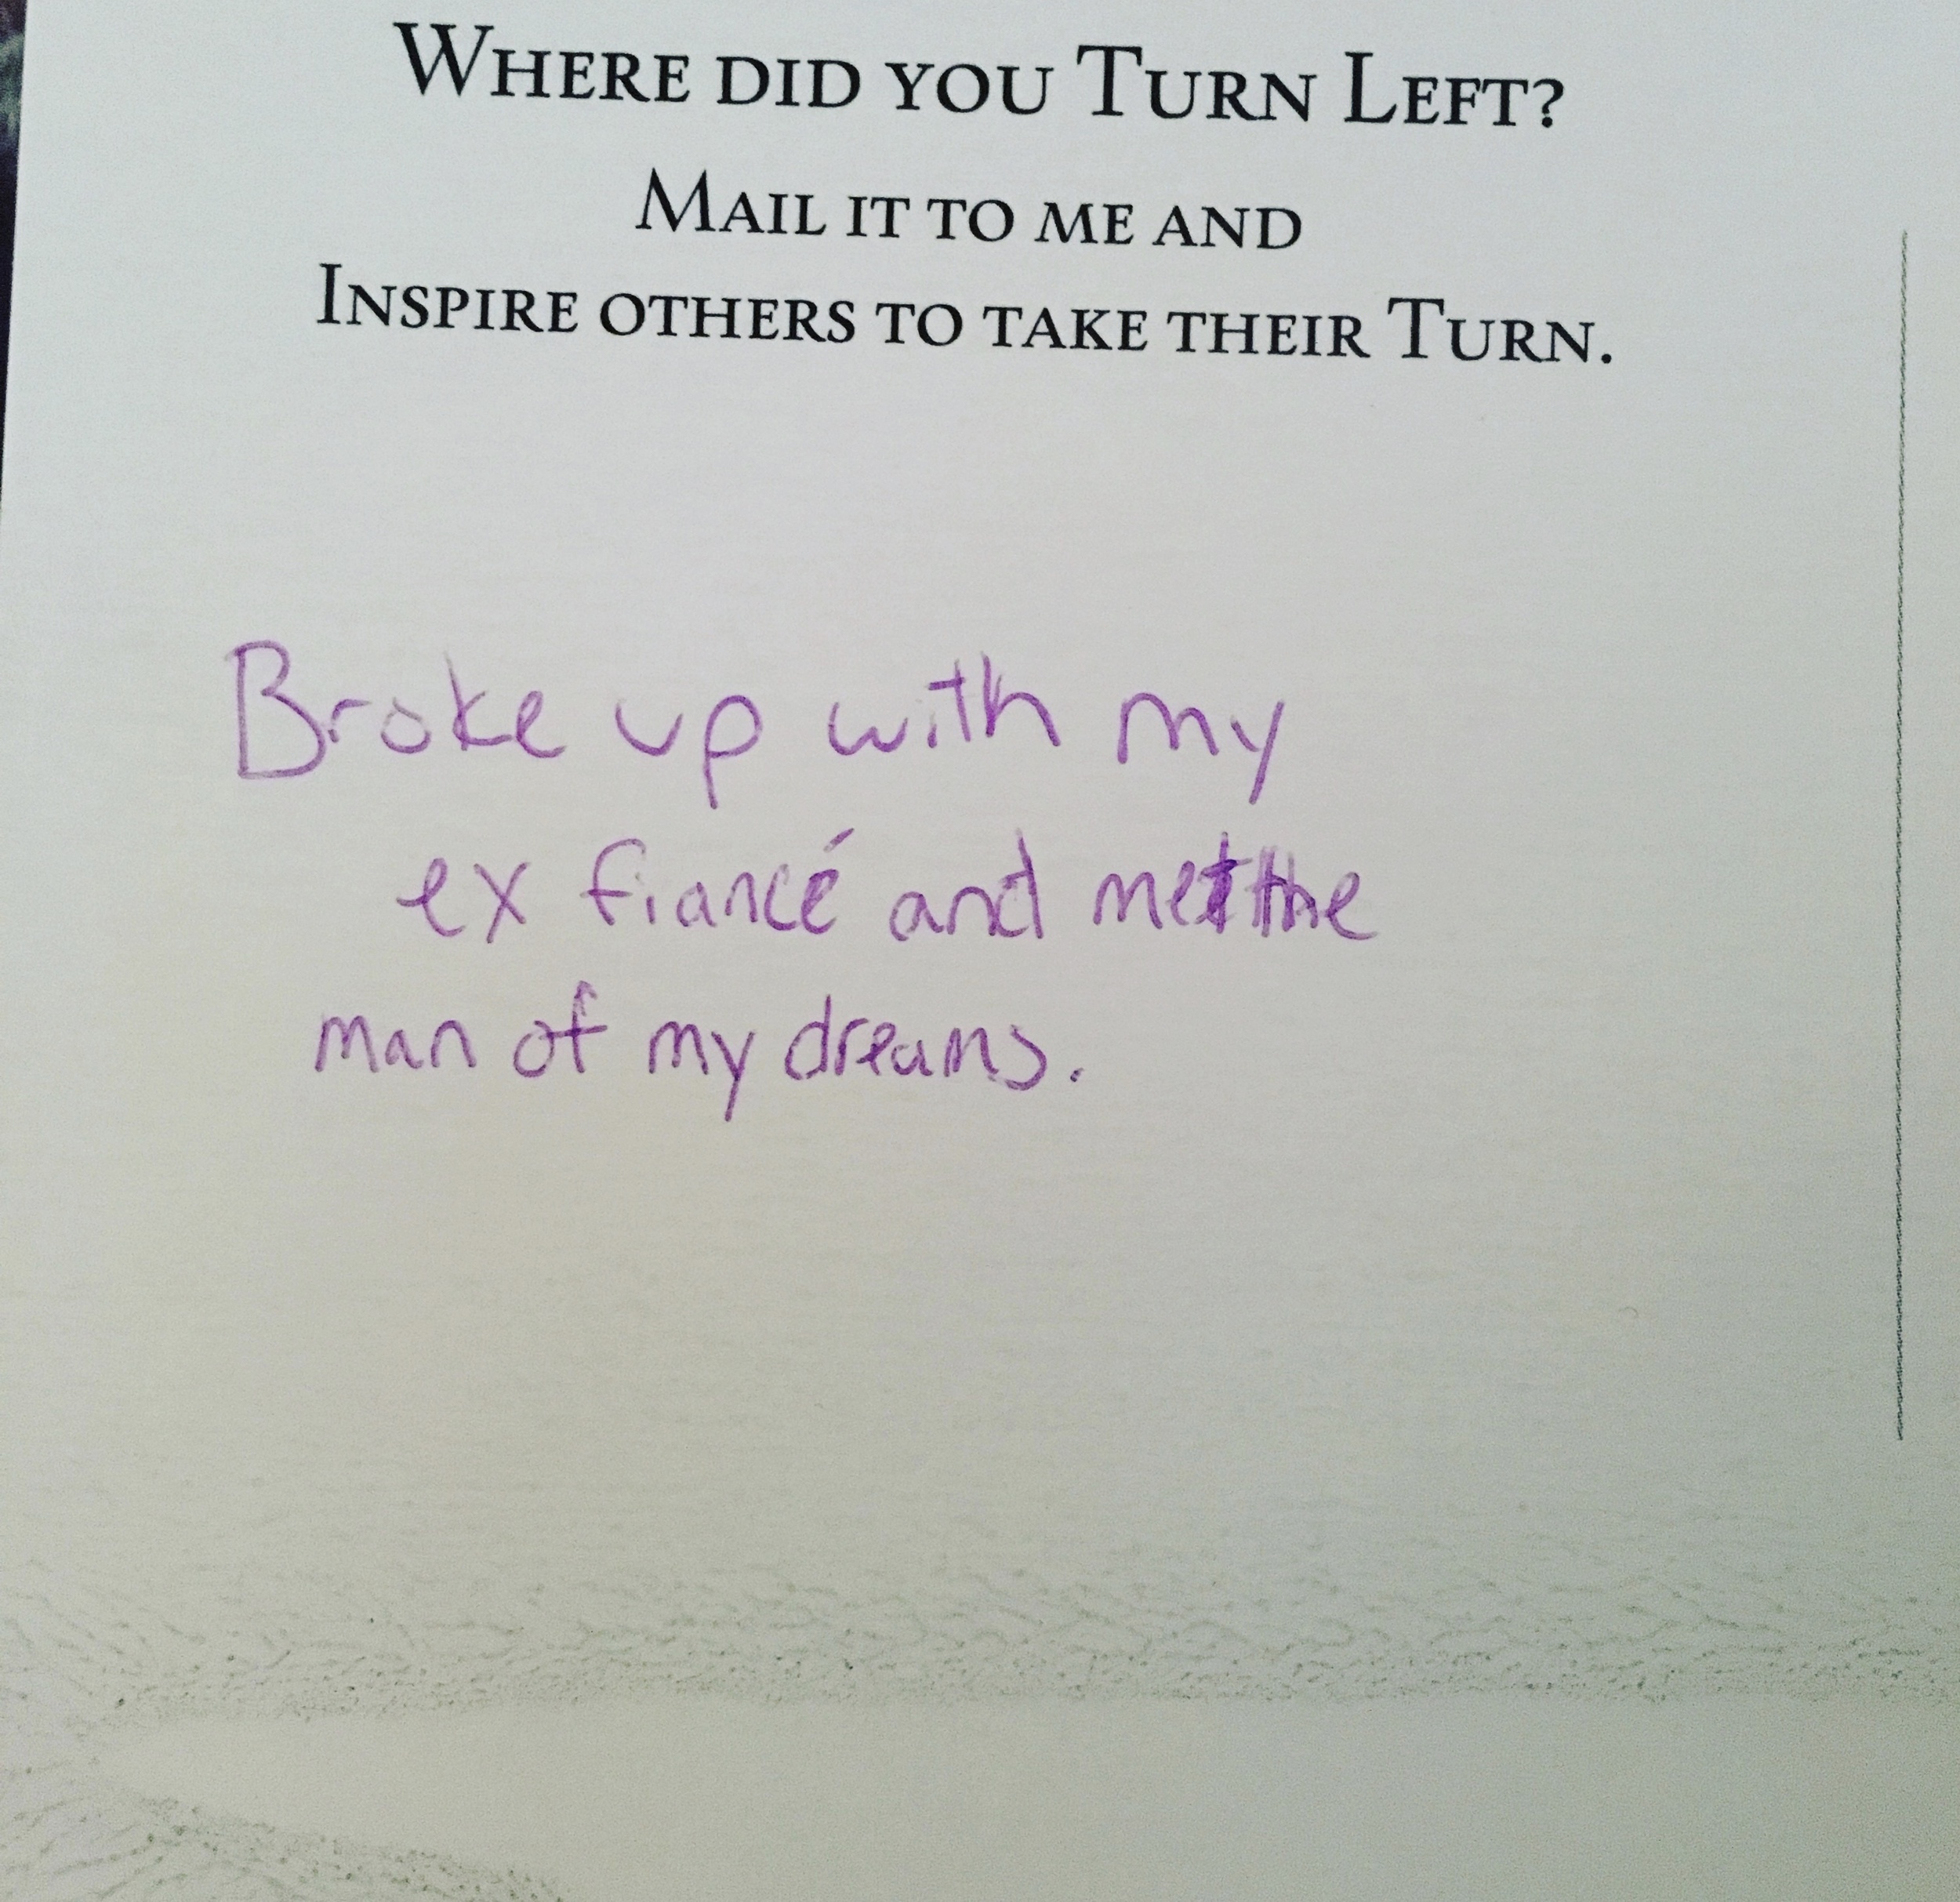 Where did you Turn Left?
Mail it to me and
Inspire others to take their Turn.
Broke up with my
ex fiancé and met the
man of my dreams.